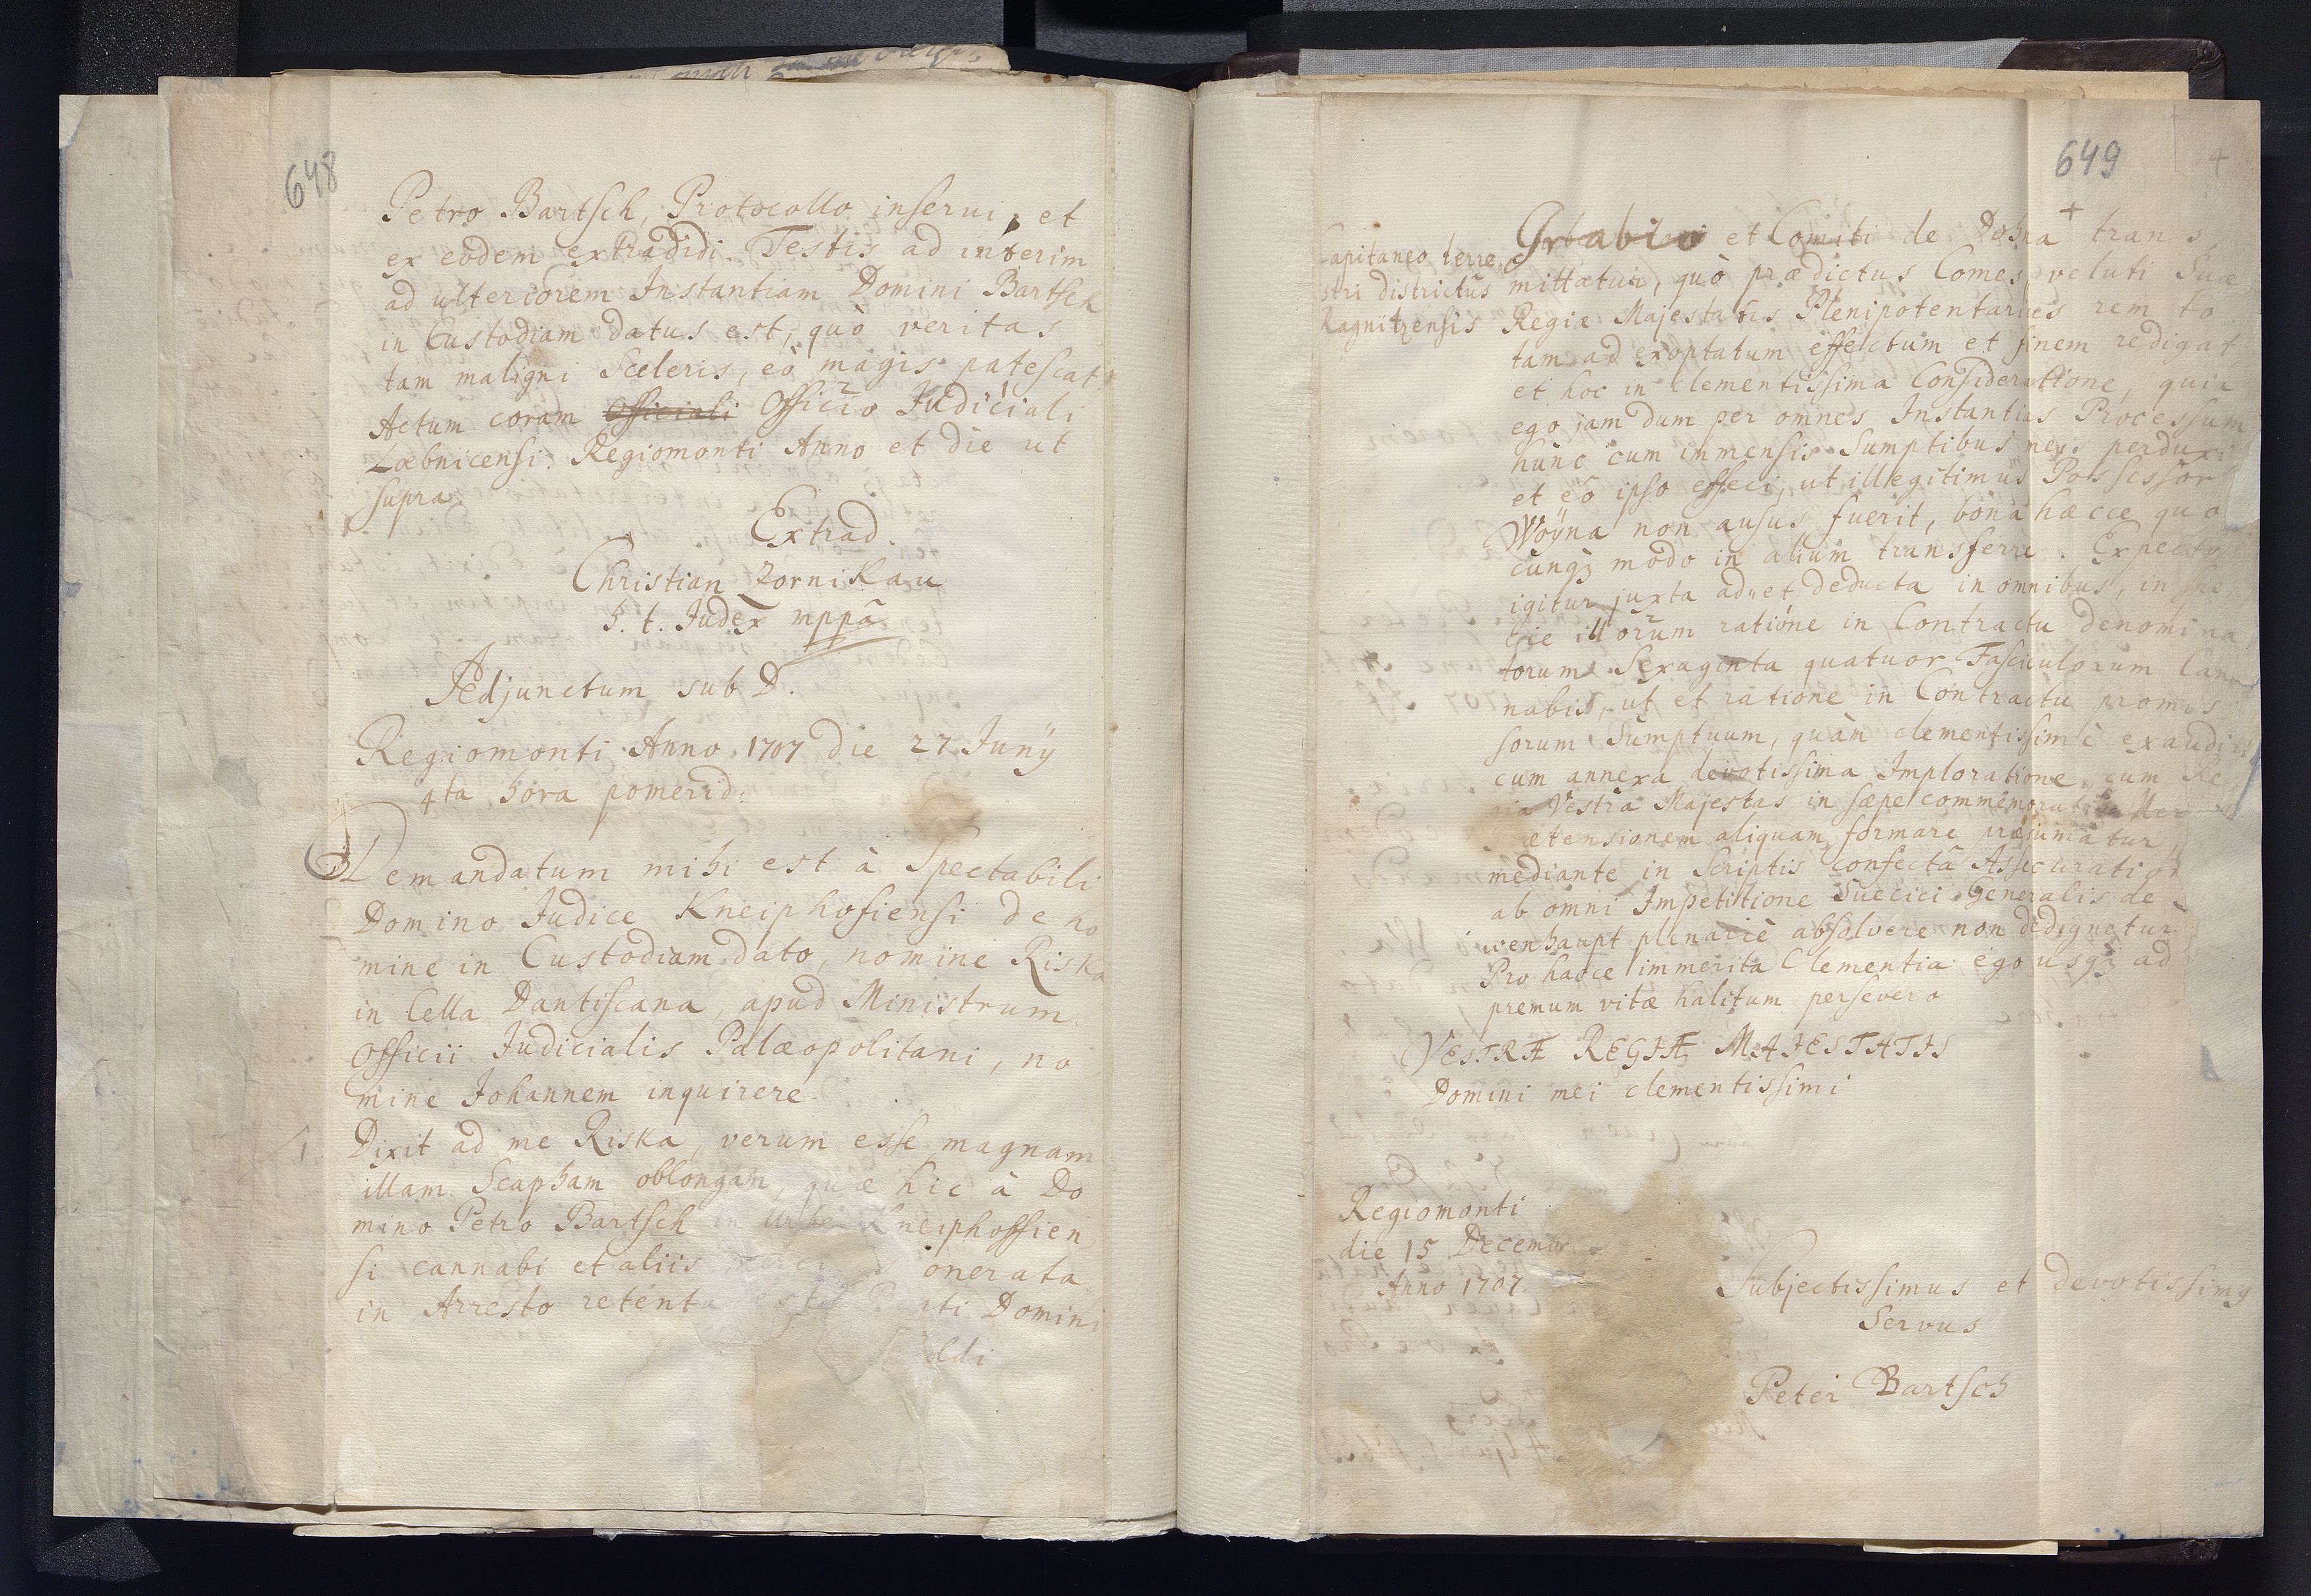 648
Petro Bartsch, Protocollo inserui, et
ex eodem extradidi. Testis ad interim
ad ulteriorem Instantiam Domini Bartsch
in Custodiam datus est, quò veritas
tam maligni Sceleris, eò magis patescat
Actum coram Officiali Officio Judiciali
Loebnicensi. Regiomonti Anno et die ut
supra.
Extrad.
Christian Zornikau
h. t. Judex mppâ
Adjunctum sub D.
Regiomonti Anno 1707 die 27 Junÿ
4ta hora pomerid:
Demandatum mihi est à Spectabili
Domino Judice Kneiphofiensi de ho
mine in Custodiam dato, nomine Riska
in Cella Dantiscana, apud Ministrum
Officii Judicialis Palæopolitani, no
mine Johannem inquirere.
1. Dixit ad me Riska, verum esse magnam
illam Scapham oblongam, quæ hic à Do
mino Petro Bartsch in Urbe Kneiphoffien
si cannabi et aliis onerata
in Arresto retenta Domini
649
4
+
Capitaneo terre
stri districtus
Ragnitzensis
et Comiti de Dohna trans
mittatur, quò prædictus Comes veluti Suæ
Regiæ Majestatis Plenipotentarius rem to
tam ad exoptatum effectum et finem redigat
et hoc in clementissima Consideratione, quia
ego jam dum per omnes Instantias Processum
hunc cum immensis Sumptibus meis perduxi
et eò ipso effeci, ut illegitimus Possessor
Woÿna non ausus fuerit, bona hæcce quo
cunq3 modo in alium transferre. Expecto
igitur juxta ad et deducta in omnibus, in spe
cie illorum ratione in Contractu denomina
torum Sexaginta quatuor Fasciculorum Can
nabis, ut et ratione in Contractu promis
sorum Sumptuum, quàm clementissimè exaudiri
cum annexa devotissima Imploratione, cum Re
gia Vestra Majestas in sæpe commemoratis
etensionem aliquam formare præsumatur,
mediante in Scriptis confectâ Assecuratio
ab omni Impetitione Suecici Generalis de
wenhaupt plenariè absolvere non dedignetur
Pro hacce immerita Clementia ego usq3 ad
premum vitæ halitum persevero
VESTRÆ REGIÆ MAJESTATIS
Domini mei clementissimi
Regiomonti
die 15 Decembr
Anno 1707.
Subjectissimus et devotissimg
Servus
Peter Bartsch